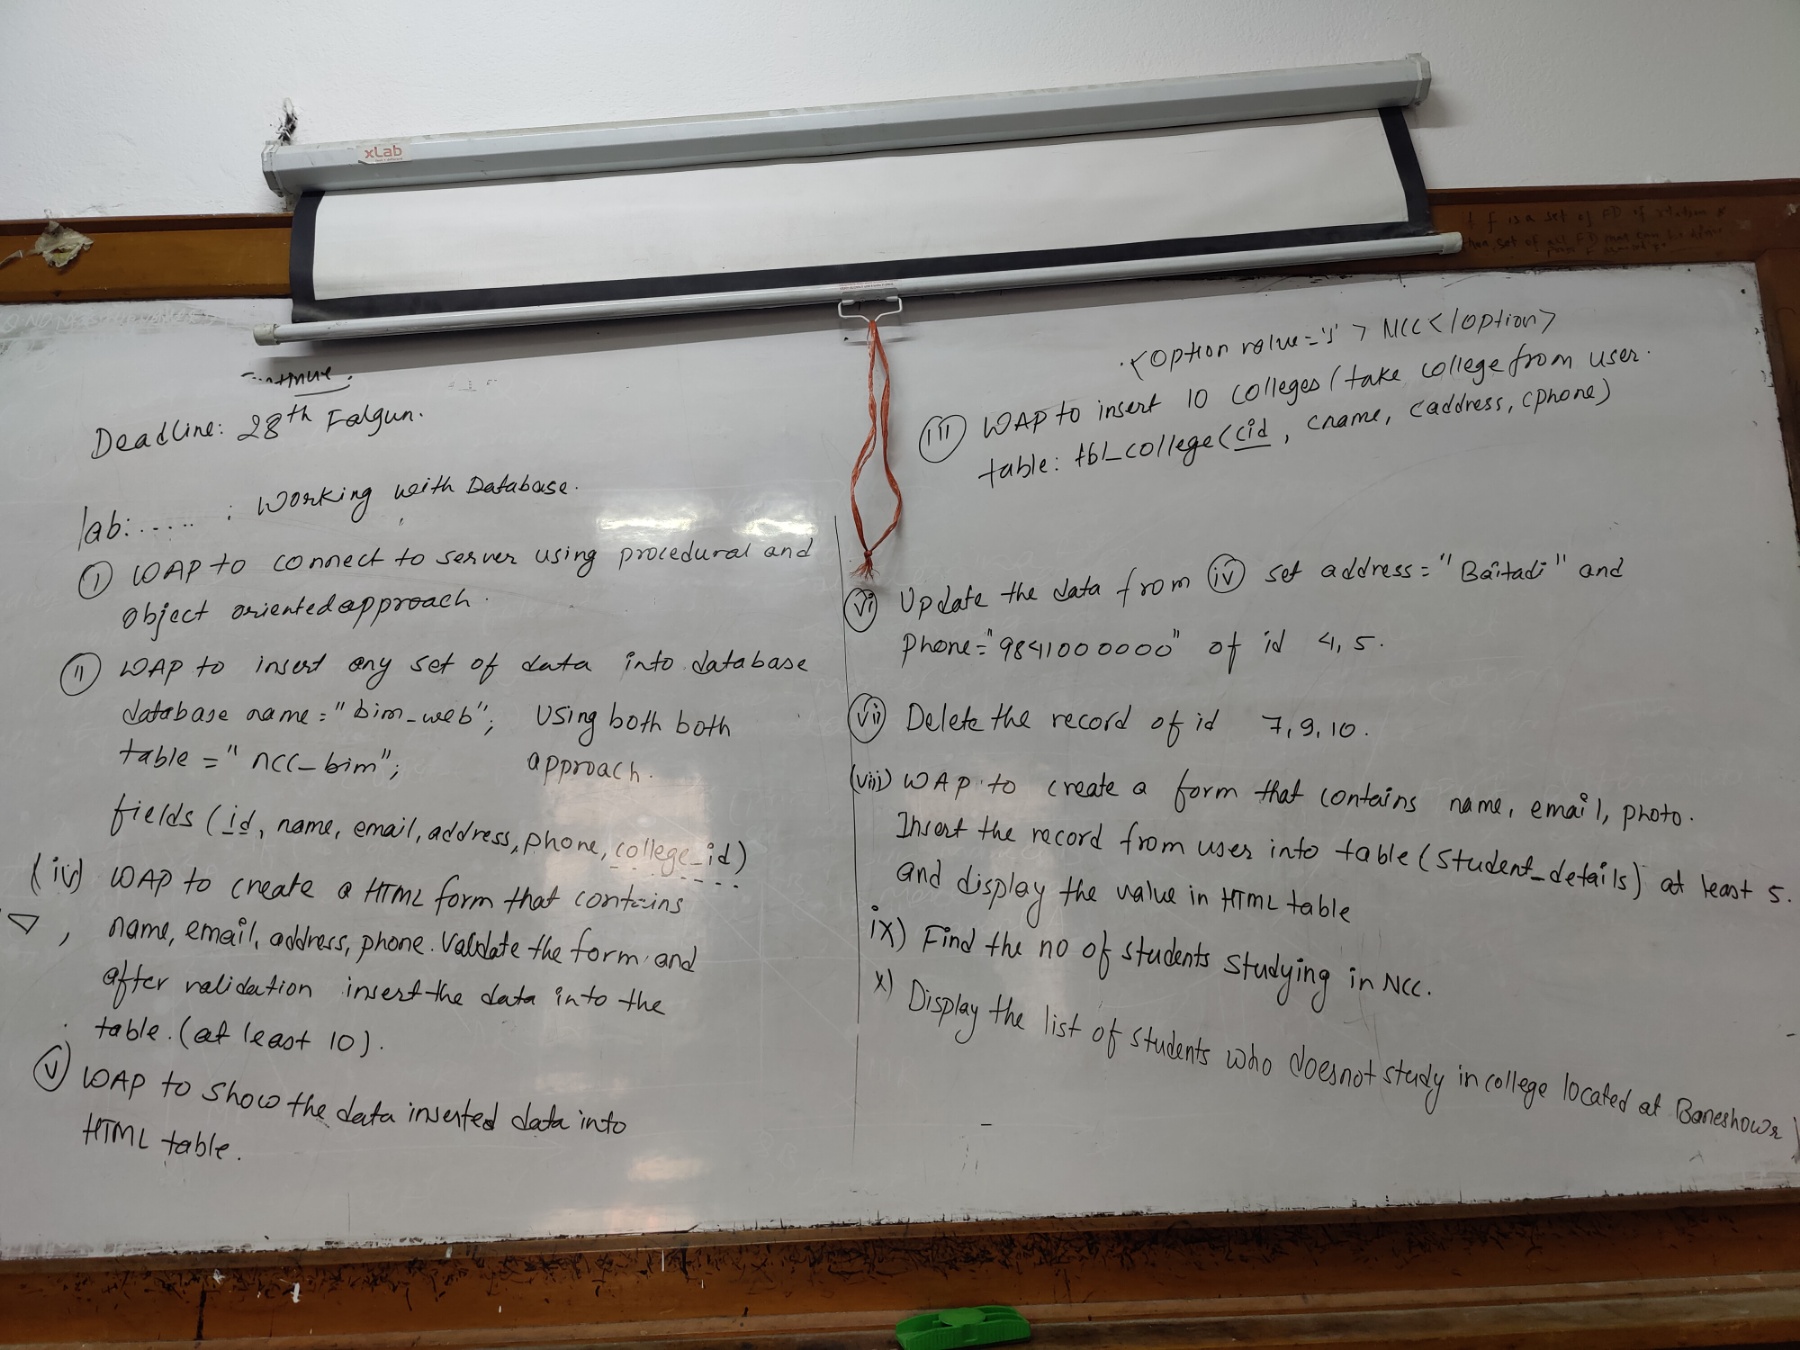 xLab
Deadline: 28th Falgun.
lab: ..... : Working with Database.
(i) WAP to connect to server using procedural and
object oriented approach.
(ii) WAP to insert any set of data into database
database name = "bim_web"; Using both both
table = "ncc_bim"; approach.
fields (id, name, email, address, phone, college_id)
(iv) WAP to create a HTML form that contains
name, email, address, phone. Validate the form and
after validation insert the data into the
table. (at least 10).
(v) WAP to show the data inserted data into
HTML table.
<option value='1'> NCC</option>
(iii) WAP to insert 10 colleges (take college from user.
table: tbl_college(cid, cname, caddress, cphone)
(vi) Update the data from (iv) set address = "Baitadi" and
Phone = "9841000000" of id 4, 5.
(vii) Delete the record of id 7, 9, 10.
(viii) WAP to create a form that contains name, email, photo.
Insert the record from user into table (student_details) at least 5.
and display the value in HTML table
ix) Find the no of students studying in NCC.
x) Display the list of students who doesnot study in college located at Baneshowr